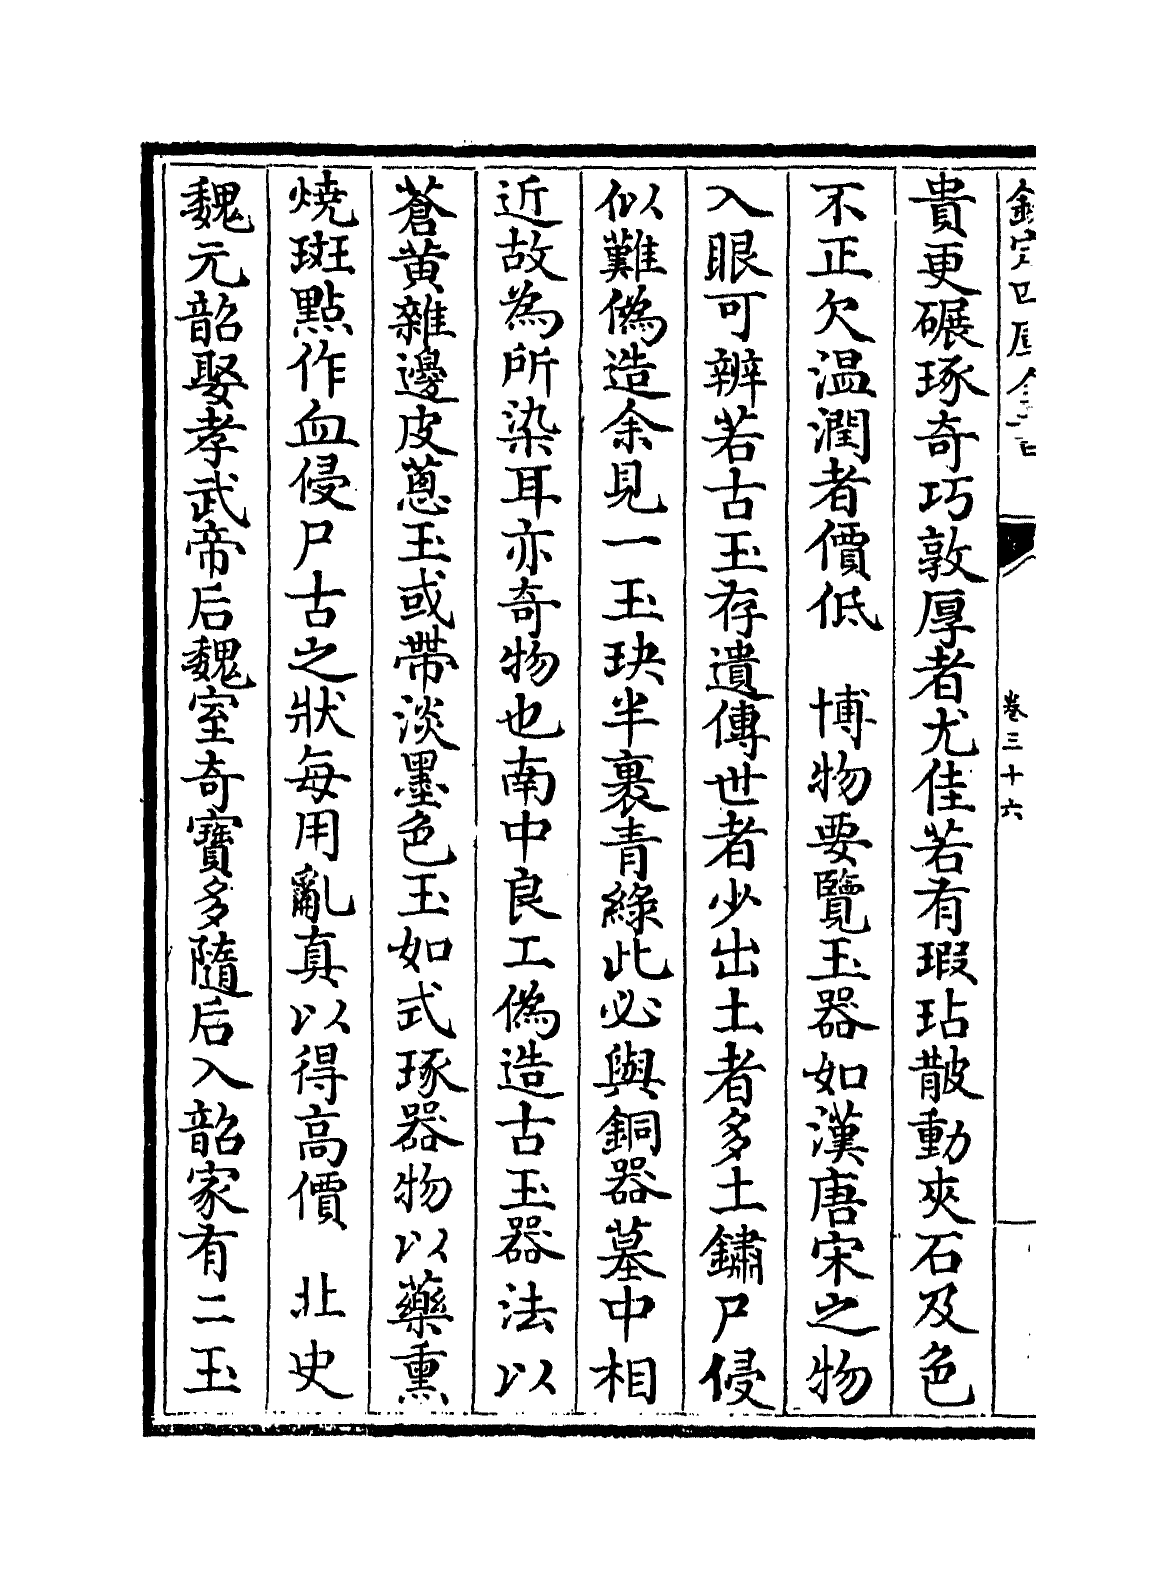 欽定四庫全書
卷三十六
貴更碾琢奇巧敦厚者尤佳若有瑕玷散動夾石及色
不正欠温潤者價低　博物要覽玉器如漢唐宋之物
入眼可辨若古玉存遺傳世者少出土者多土鏽尸侵
似難偽造余見一玉玦半裹青緑此必與銅器墓中相
近故為所染耳亦奇物也南中良工偽造古玉器法以
蒼黄雜邊皮蔥玉或帶淡墨色玉如式琢器物以藥熏
燒斑點作血侵尸古之狀每用亂真以得高價　北史
魏元韶娶孝武帝后魏室奇寶多隨后入韶家有二玉